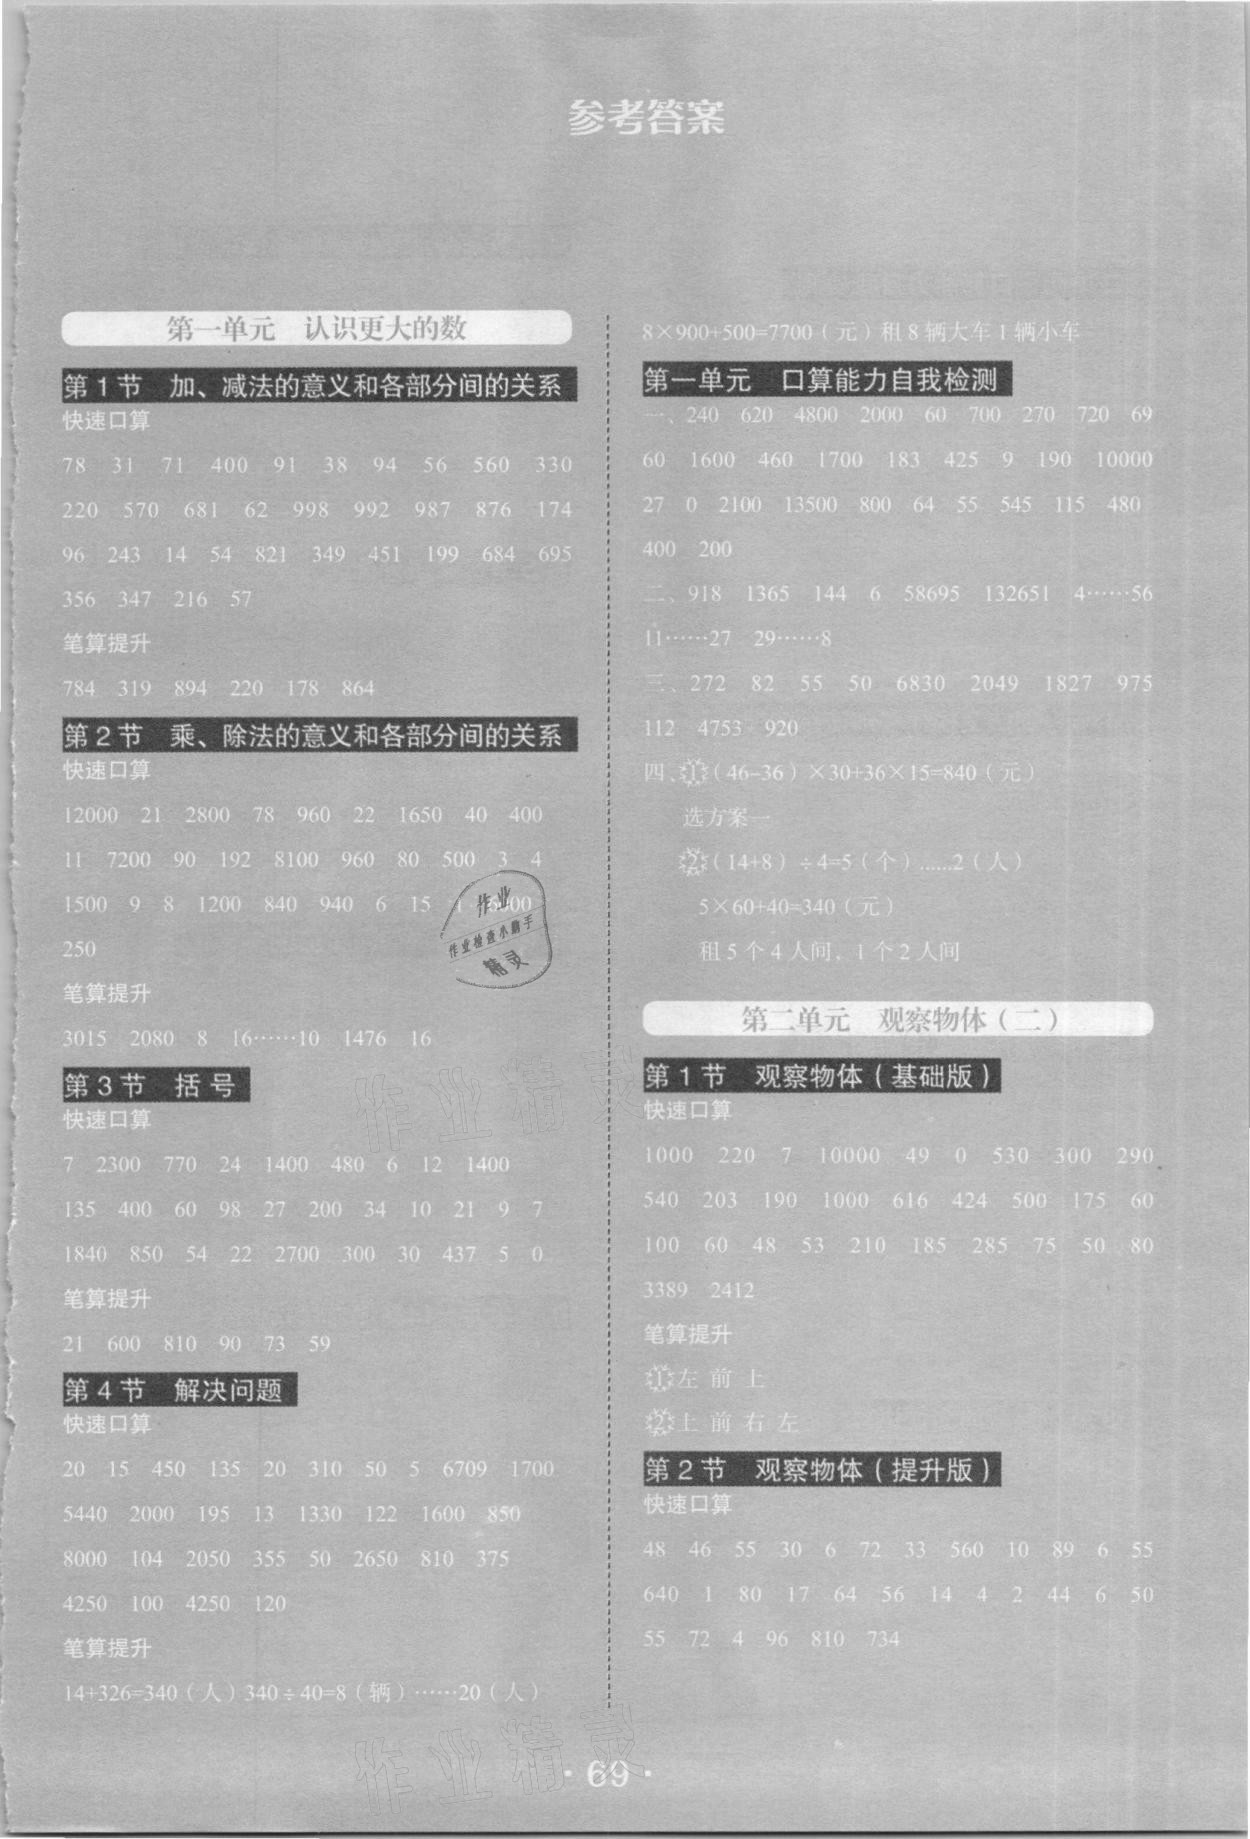 参考答案
第一单元 认识更大的数
第1节 加、减法的意义和各部分间的关系
快速口算
78 31 71 400 91 38 94 56 560 330
220 570 681 62 998 992 987 876 174
96 243 14 54 821 349 451 199 684 695
356 347 216 57
笔算提升
784 319 894 220 178 864
第2节 乘、除法的意义和各部分间的关系
快速口算
12000 21 2800 78 960 22 1650 40 400
11 7200 90 192 8100 960 80 500 3 4
1500 9 8 1200 840 940 6 15
250
笔算提升
3015 2080 8 16……10 1476 16
第3节 括号
快速口算
7 2300 770 24 1400 480 6 12 1400
135 400 60 98 27 200 34 10 21 9 7
1840 850 54 22 2700 300 30 437 5 0
笔算提升
21 600 810 90 73 59
第4节 解决问题
快速口算
20 15 450 135 20 310 50 5 6709 1700
5440 2000 195 13 1330 122 1600 850
8000 104 2050 355 50 2650 810 375
4250 100 4250 120
笔算提升
14+326=340(人)340÷40=8(辆)……20(人)
8×900+500=7700(元)租8辆大车1辆小车
第一单元 口算能力自我检测
一、240 620 4800 2000 60 700 270 720 69
60 1600 460 1700 183 425 9 190 10000
27 0 2100 13500 800 64 55 545 115 480
400 200
二、918 1365 144 6 58695 132651 4……56
11……27 29……8
三、272 82 55 50 6830 2049 1827 975
112 4753 920
四、1(46-36)×30+36×15=840(元)
选方案一
2(14+8)÷4=5(个)......2(人)
5×60+40=340(元)
租5个4人间，1个2人间
第二单元 观察物体(二)
第1节 观察物体(基础版)
快速口算
1000 220 7 10000 49 0 530 300 290
540 203 190 1000 616 424 500 175 60
100 60 48 53 210 185 285 75 50 80
3389 2412
笔算提升
1左 前 上
2上 前 右 左
第2节 观察物体(提升版)
快速口算
48 46 55 30 6 72 33 560 10 89 6 55
640 1 80 17 64 56 14 4 2 44 6 50
55 72 4 96 810 734
作业
作业检查小助手
精灵
作业精灵
作业精灵
·69·